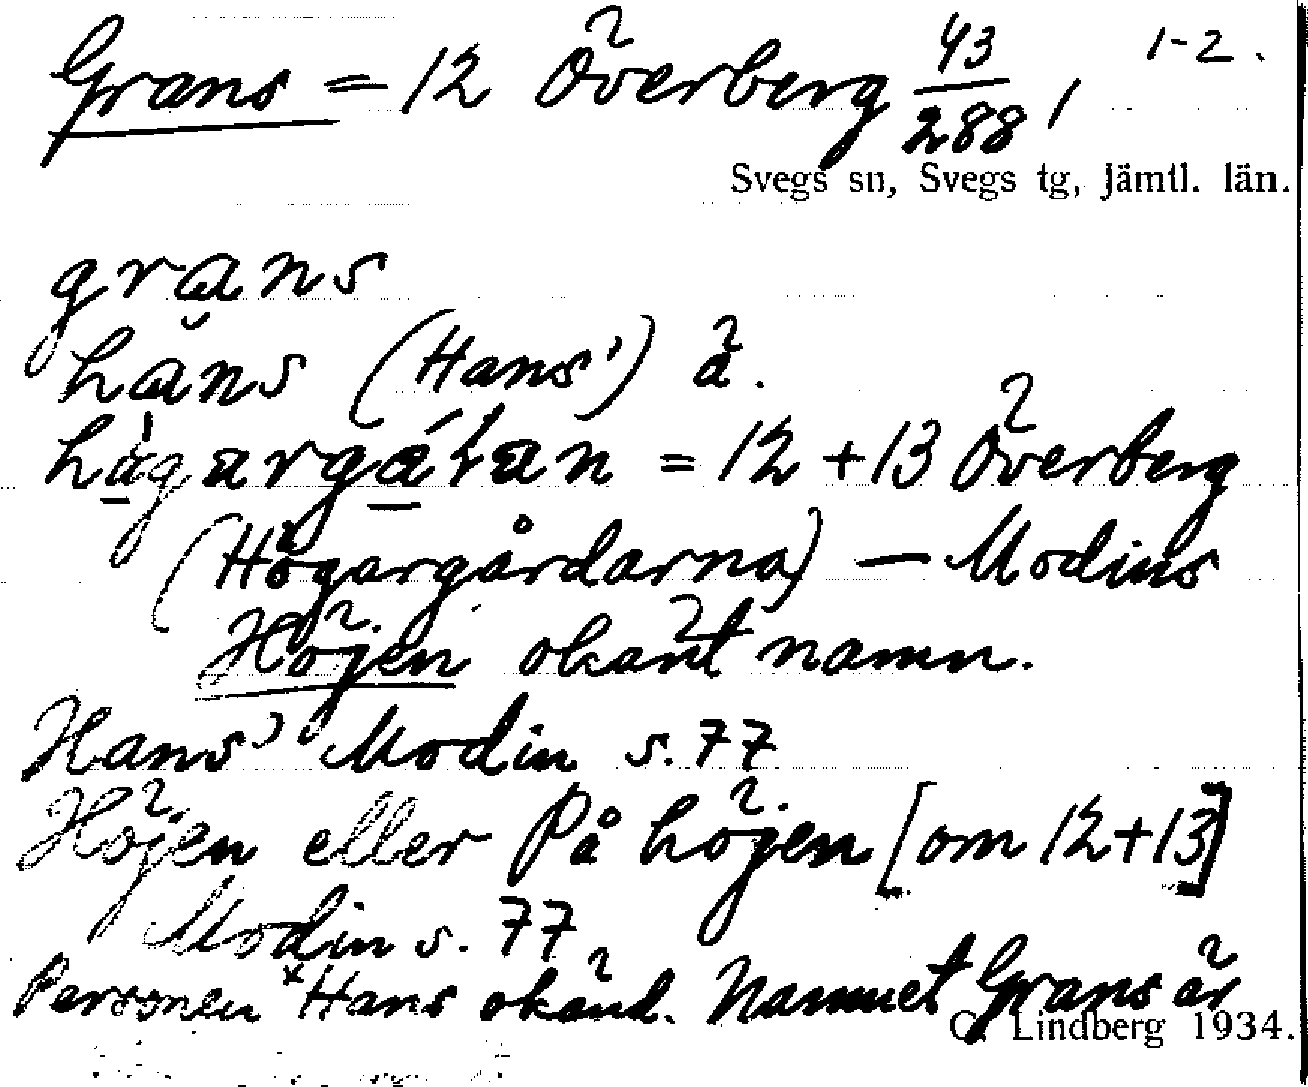 Grans = 12 Överberg 43/288, 1-2.
Svegs sn, Svegs tg, Jämtl. län.
grans
hans (Hans') ä.
= 12 + 13 Överberg
(Högargårdarna) — Modins
Höjen okänt namn.
Hans' Modin s. 77
Höjen eller På höjen [om 12+13]
Modin s. 77
Personen *Hans okänd. Namnet Grans är
C. Lindberg 1934.